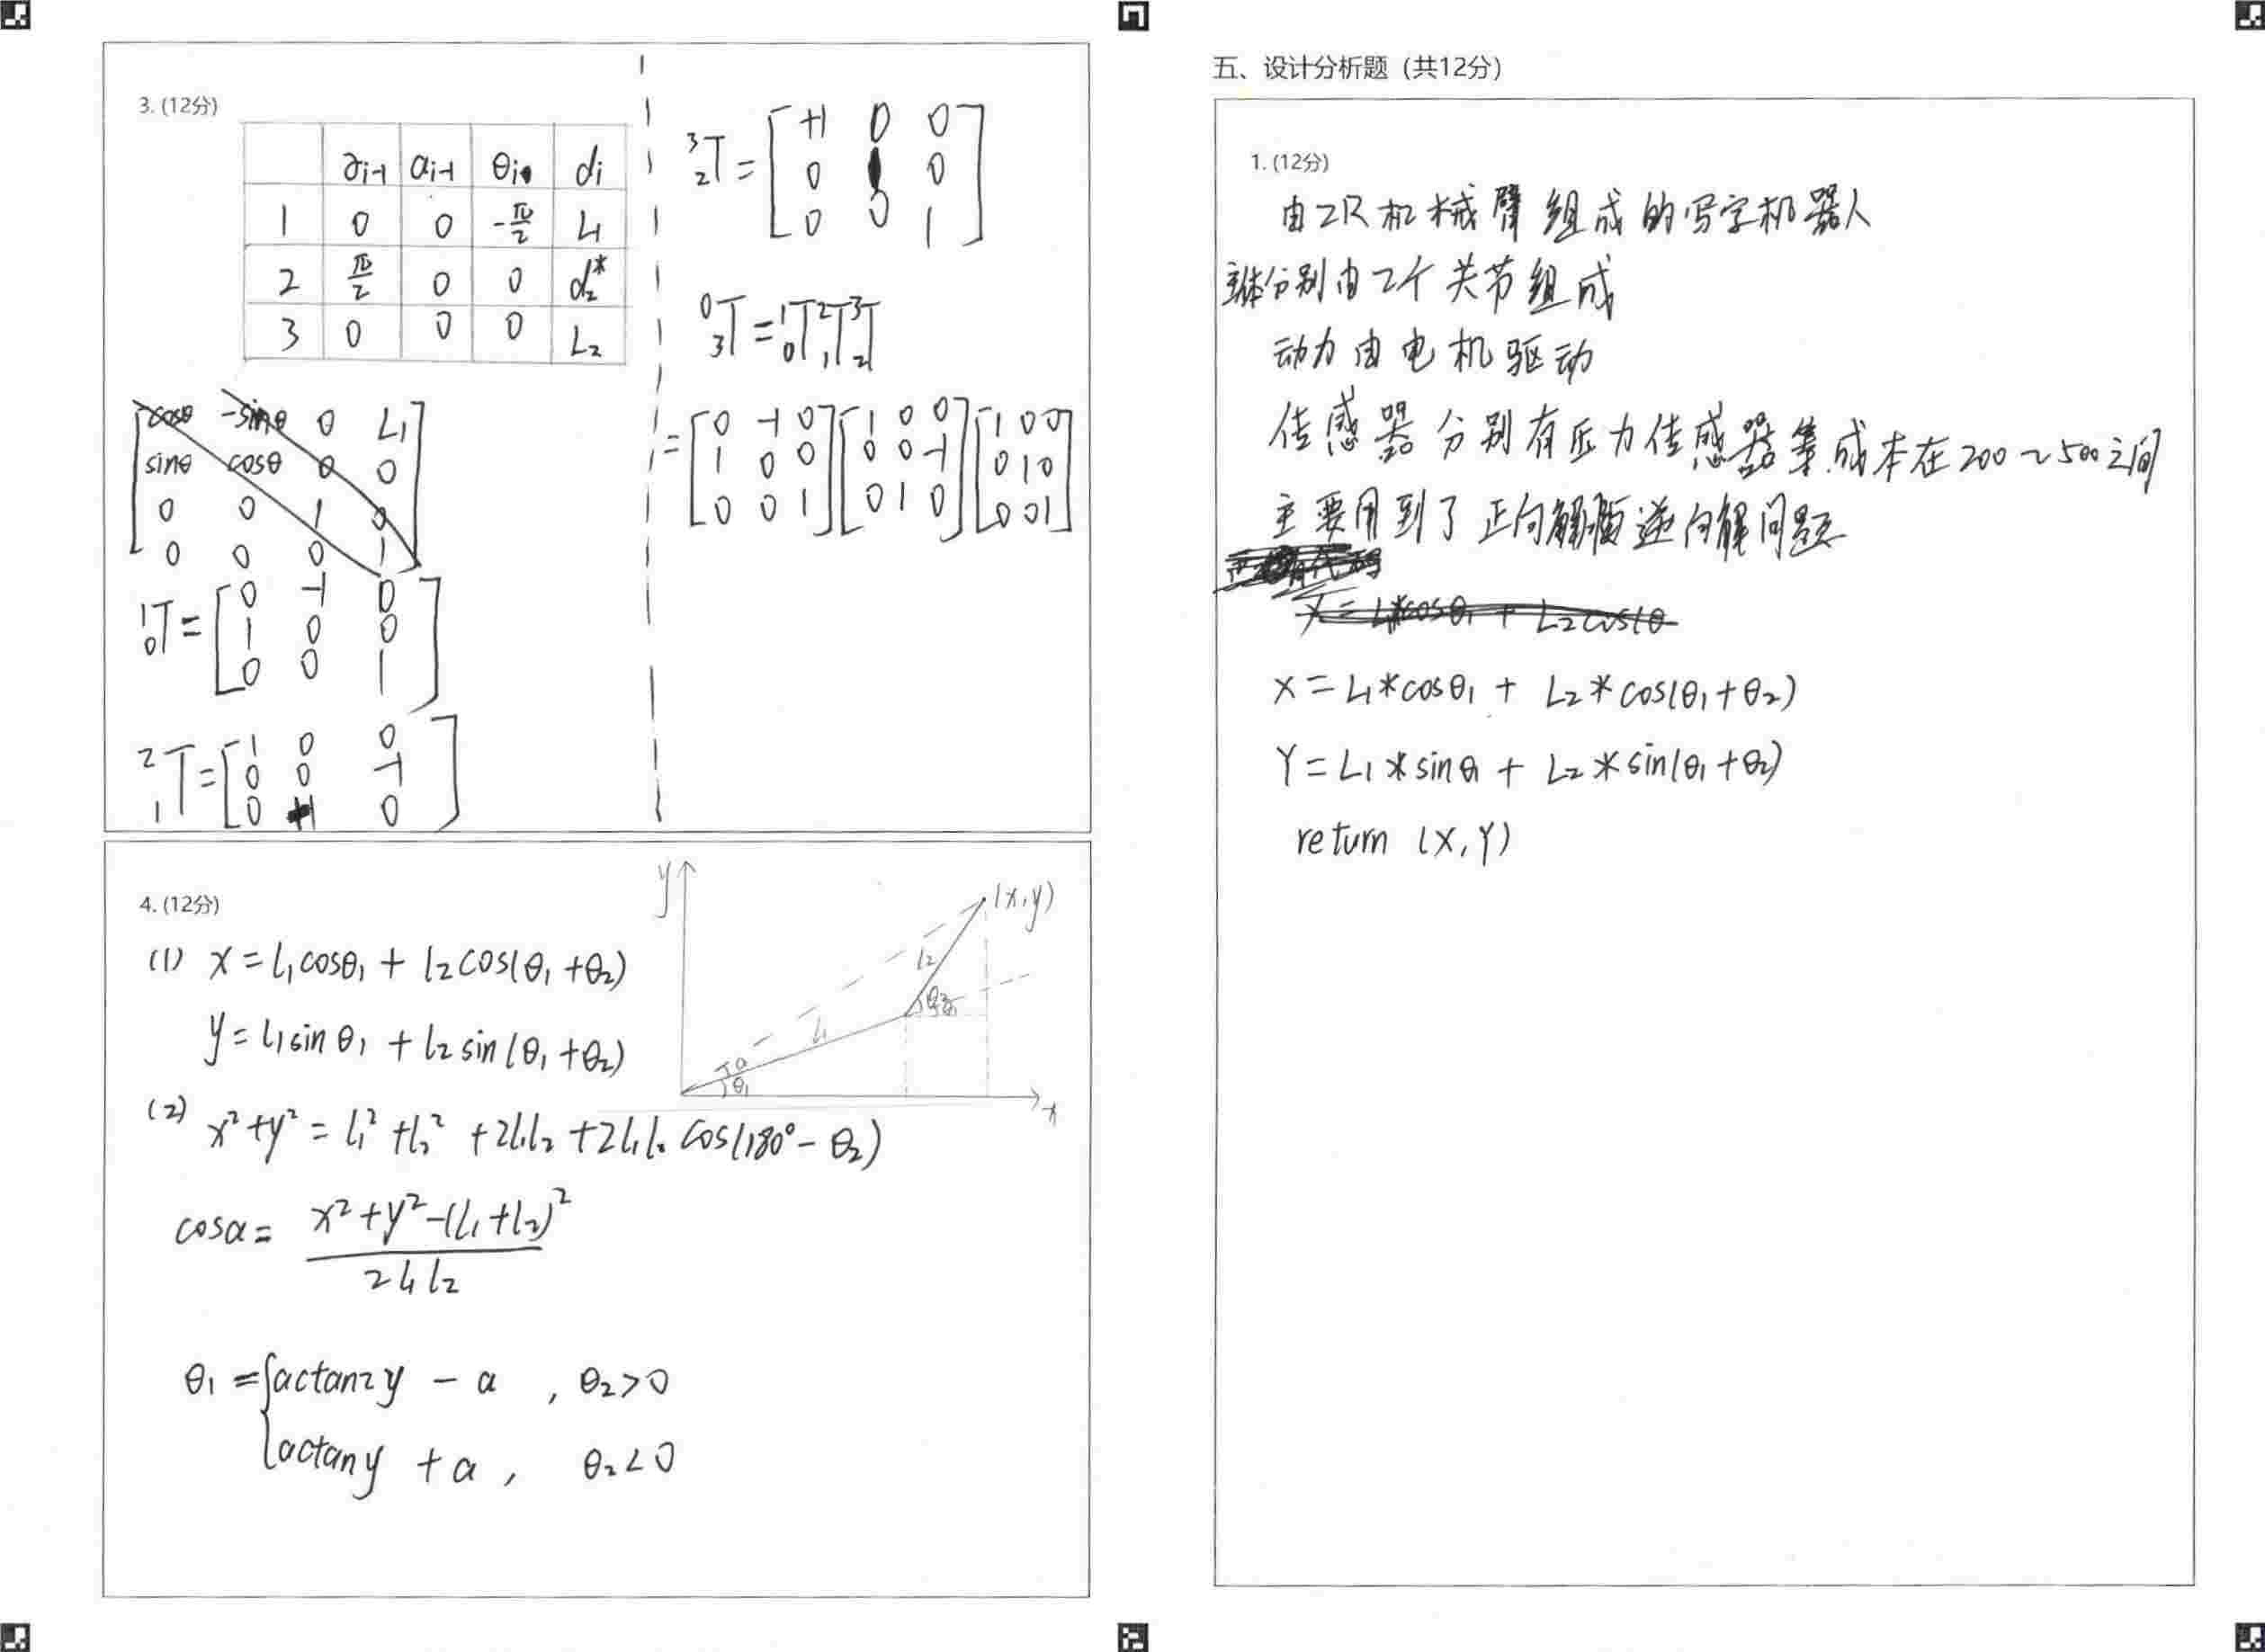 3. (12分)
∂i-1 ai-1 θi di
1 0 0 -π/2 L1
2 π/2 0 0 d2*
3 0 0 0 L2
cosθ -sinθ 0 L1
sinθ cosθ 0 0
0 0 1 0
0 0 0 1
1 0T = [0 -1 0
1 0 0
0 0 1]
2 1T = [1 0 0
0 0 -1
0 +1 0]
3 2T = [+1 0 0
0 1 0
0 0 1]
0 3T = 1 0T 2 1T 3 2T
= [0 -1 0 [1 0 0 [1 0 0
1 0 0 0 0 -1 0 1 0
0 0 1] 0 1 0] 0 0 1]
4. (12分)
y (x,y)
l2
θ2
l1
a
θ1
x
(1) x = l1cosθ1 + l2cos(θ1+θ2)
y = l1sinθ1 + l2sin(θ1+θ2)
(2) x²+y² = l1²+l2² +2l1l2 +2l1l2 cos(180°-θ2)
cosα = x²+y²-(l1+l2)²
2l1l2
θ1 = { actan2y - a , θ2>0
actany + a , θ2<0
五、设计分析题 (共12分)
1. (12分)
由2R机械臂组成的写字机器人
主体分别由2个关节组成
动力由电机驱动
传感器分别有压力传感器等.成本在200~500之间
主要用到了正向解 逆向解问题
X = L1*cosθ1 + L2cos(θ
X = L1*cosθ1 + L2*cos(θ1+θ2)
Y = L1*sinθ1 + L2*sin(θ1+θ2)
return (X,Y)